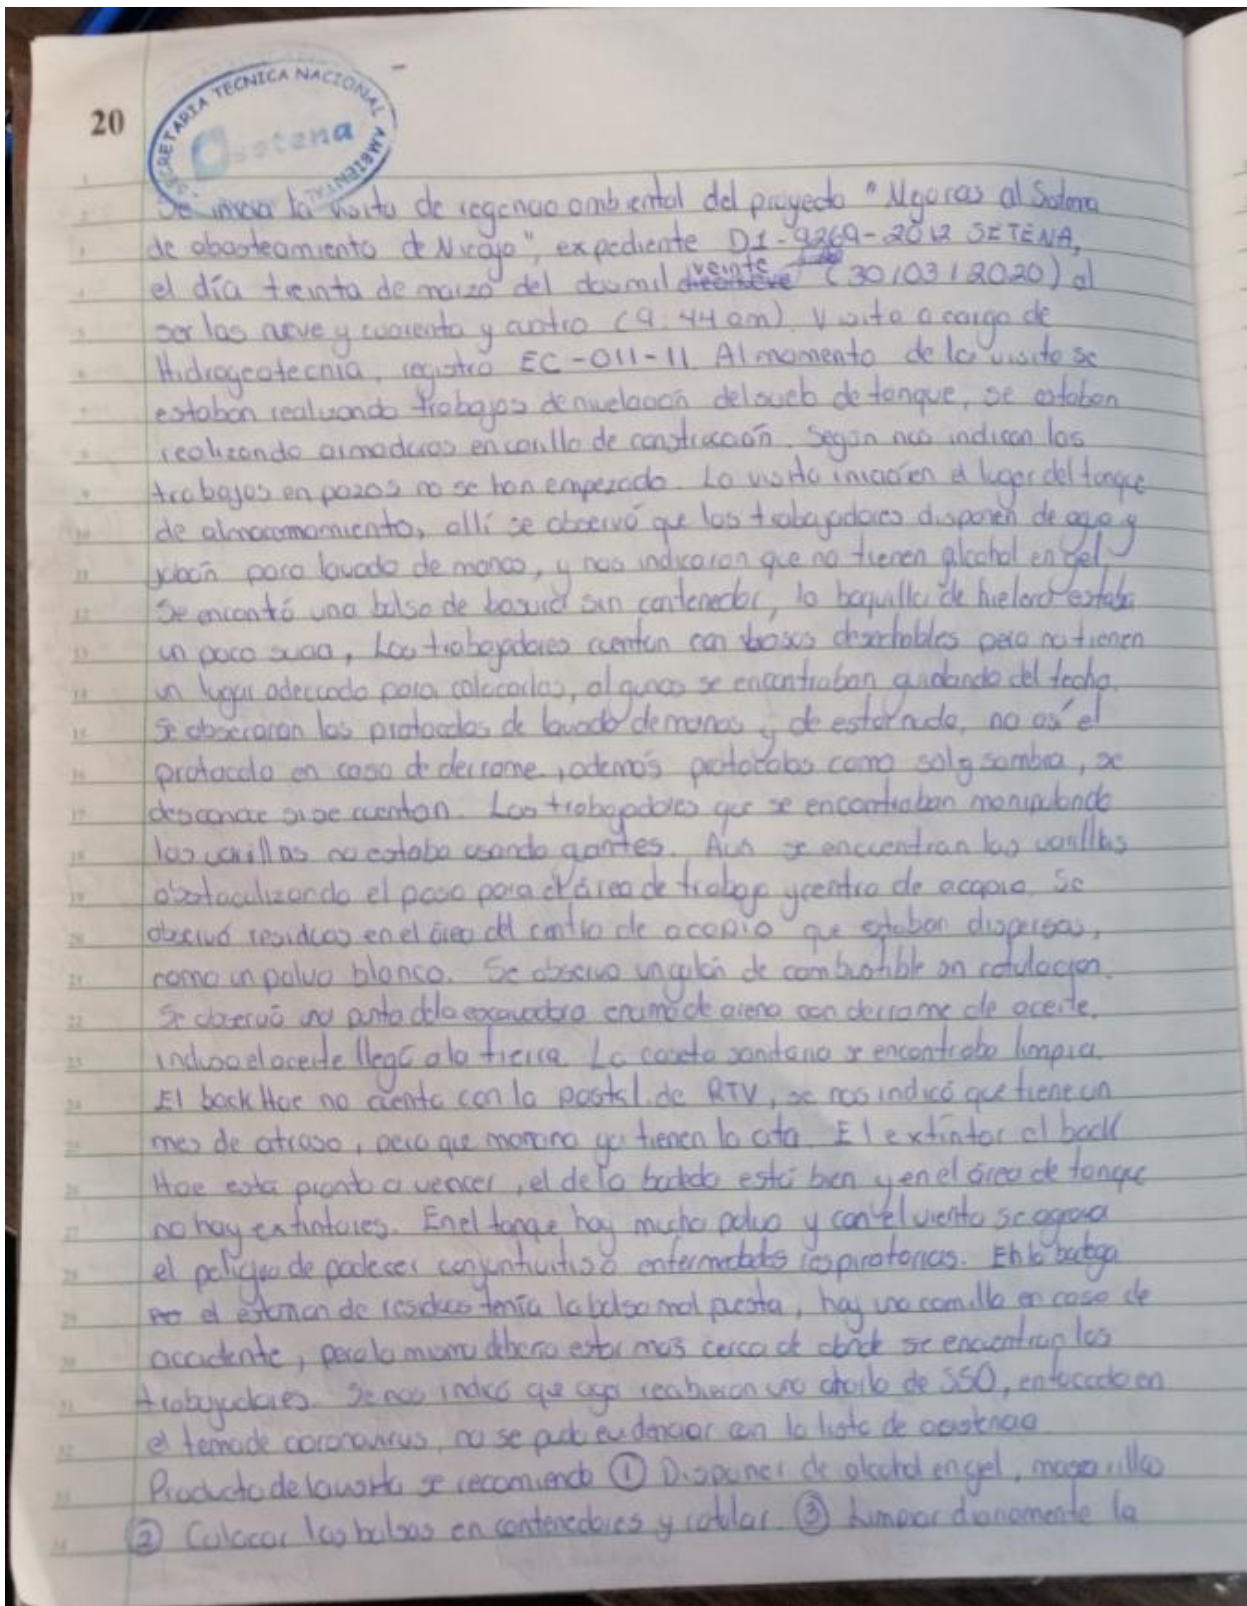 20
SECRETARIA TECNICA NACIONAL AMBIENTAL
setena
Se inicia la visita de regencia ambiental del proyecto "Mejoras al Sistema
de abastecimiento de Nicoya", expediente D1-9269-2012 SETENA,
el día treinta de marzo del dosmil veinte (30/03/2020) al
ser las nueve y cuarenta y cuatro (9:44 am). Visita a cargo de
Hidrogeotecnia, registro EC-011-11. Al momento de la visita se
estaban realizando trabajos de nivelación del suelo de tanque, se estaban
realizando armaduras en varilla de construcción. Según nos indican los
trabajos en pozos no se han empezado. La visita inició en el lugar del tanque
de almacenamiento, allí se observó que los trabajadores disponen de agua y
jabón para lavado de manos, y nos indicaron que no tienen alcohol en gel.
Se encontró una bolsa de basura sin contenedor, la boquilla de hielera estaba
un poco sucia, Los trabajadores cuentan con vasos desechables pero no tienen
un lugar adecuado para colocarlos, algunos se encontraban guindando del techo.
Se observaron los protocolos de lavado de manos y de estornudo, no así el
protocolo en caso de derrame, además protocolos como sol y sombra, se
desconoce si se cuentan. Los trabajadores que se encontraban manipulando
las varillas no estaba usando guantes. Aun se encuentran las varillas
obstaculizando el paso para el área de trabajo y centro de acopio. Se
observó residuos en el área del centro de acopio que estaban dispersos,
como un polvo blanco. Se observo un galón de combustible sin rotulación.
Se observó una punta de la excavadora encima de arena con derrame de aceite,
incluso el aceite llegó a la tierra. La caseta sanitaria se encontraba limpia.
El back Hoe no cuenta con la postal de RTV, se nos indicó que tiene un
mes de atraso, pero que manana ya tienen la cita. El extintor el back
Hoe esta pronto a vencer, el de la bodega está bien y en el área de tanque
no hay extintores. En el tanque hay mucho polvo y con el viento se agrava
el peligro de padecer conjuntivitis o enfermedades respiratorias. En la bodega
el estanon de residuos tenía la bolsa mal puesta, hay una camilla en caso de
accidente, pero la misma deberia estar más cerca de donde se encuentran los
trabajadores. Se nos indicó que ayer recibieron una charla de SSO, enfocado en
el tema de coronavirus, no se pudo evidenciar con la lista de asistencia
Producto de la visita se recomienda ① Disponer de alcohol en gel, mascarillas
② Colocar las bolsas en contenedores y rotular. ③ Limpiar diariamente la